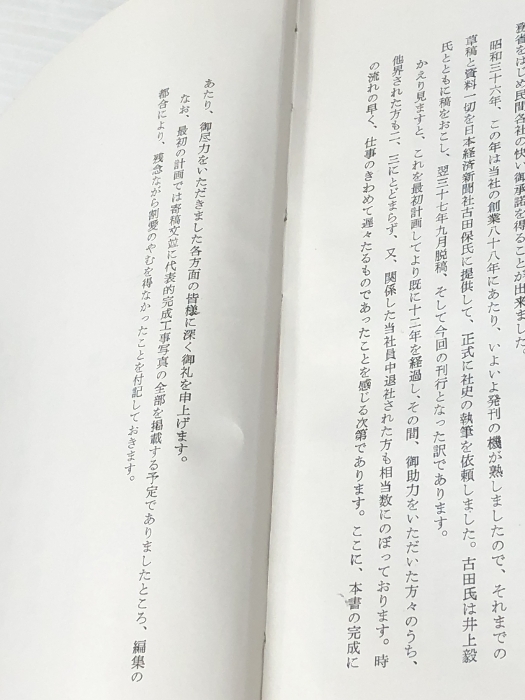 省をはじめ民間各社の快い御承諾を得ることが出来ました。
昭和三十六年、この年は当社の創業八十八年にあたり、いよいよ発刊の機が熟しましたので、それまでの
草稿と資料一切を日本経済新聞社古田保氏に提供して、正式に社史の執筆を依頼しました。古田氏は井上毅
氏とともに稿をおこし、翌三十七年九月脱稿、そして今回の刊行となった訳であります。
かえり見ますと、これを最初計画してより既に十二年を経過し、その間、御助力をいただいた方々のうち、
他界された方も二、三にとどまらず、又、関係した当社員中退社された方も相当数にのぼっております。時
の流れの早く、仕事のきわめて遅々たるものであったことを感じる次第であります。ここに、本書の完成に
あたり、御尽力をいただきました各方面の皆様に深く御礼を申上げます。
なお、最初の計画では寄稿文並に代表的完成工事写真の全部を掲載する予定でありましたところ、編集の
都合により、残念ながら割愛のやむを得なかったことを付記しておきます。